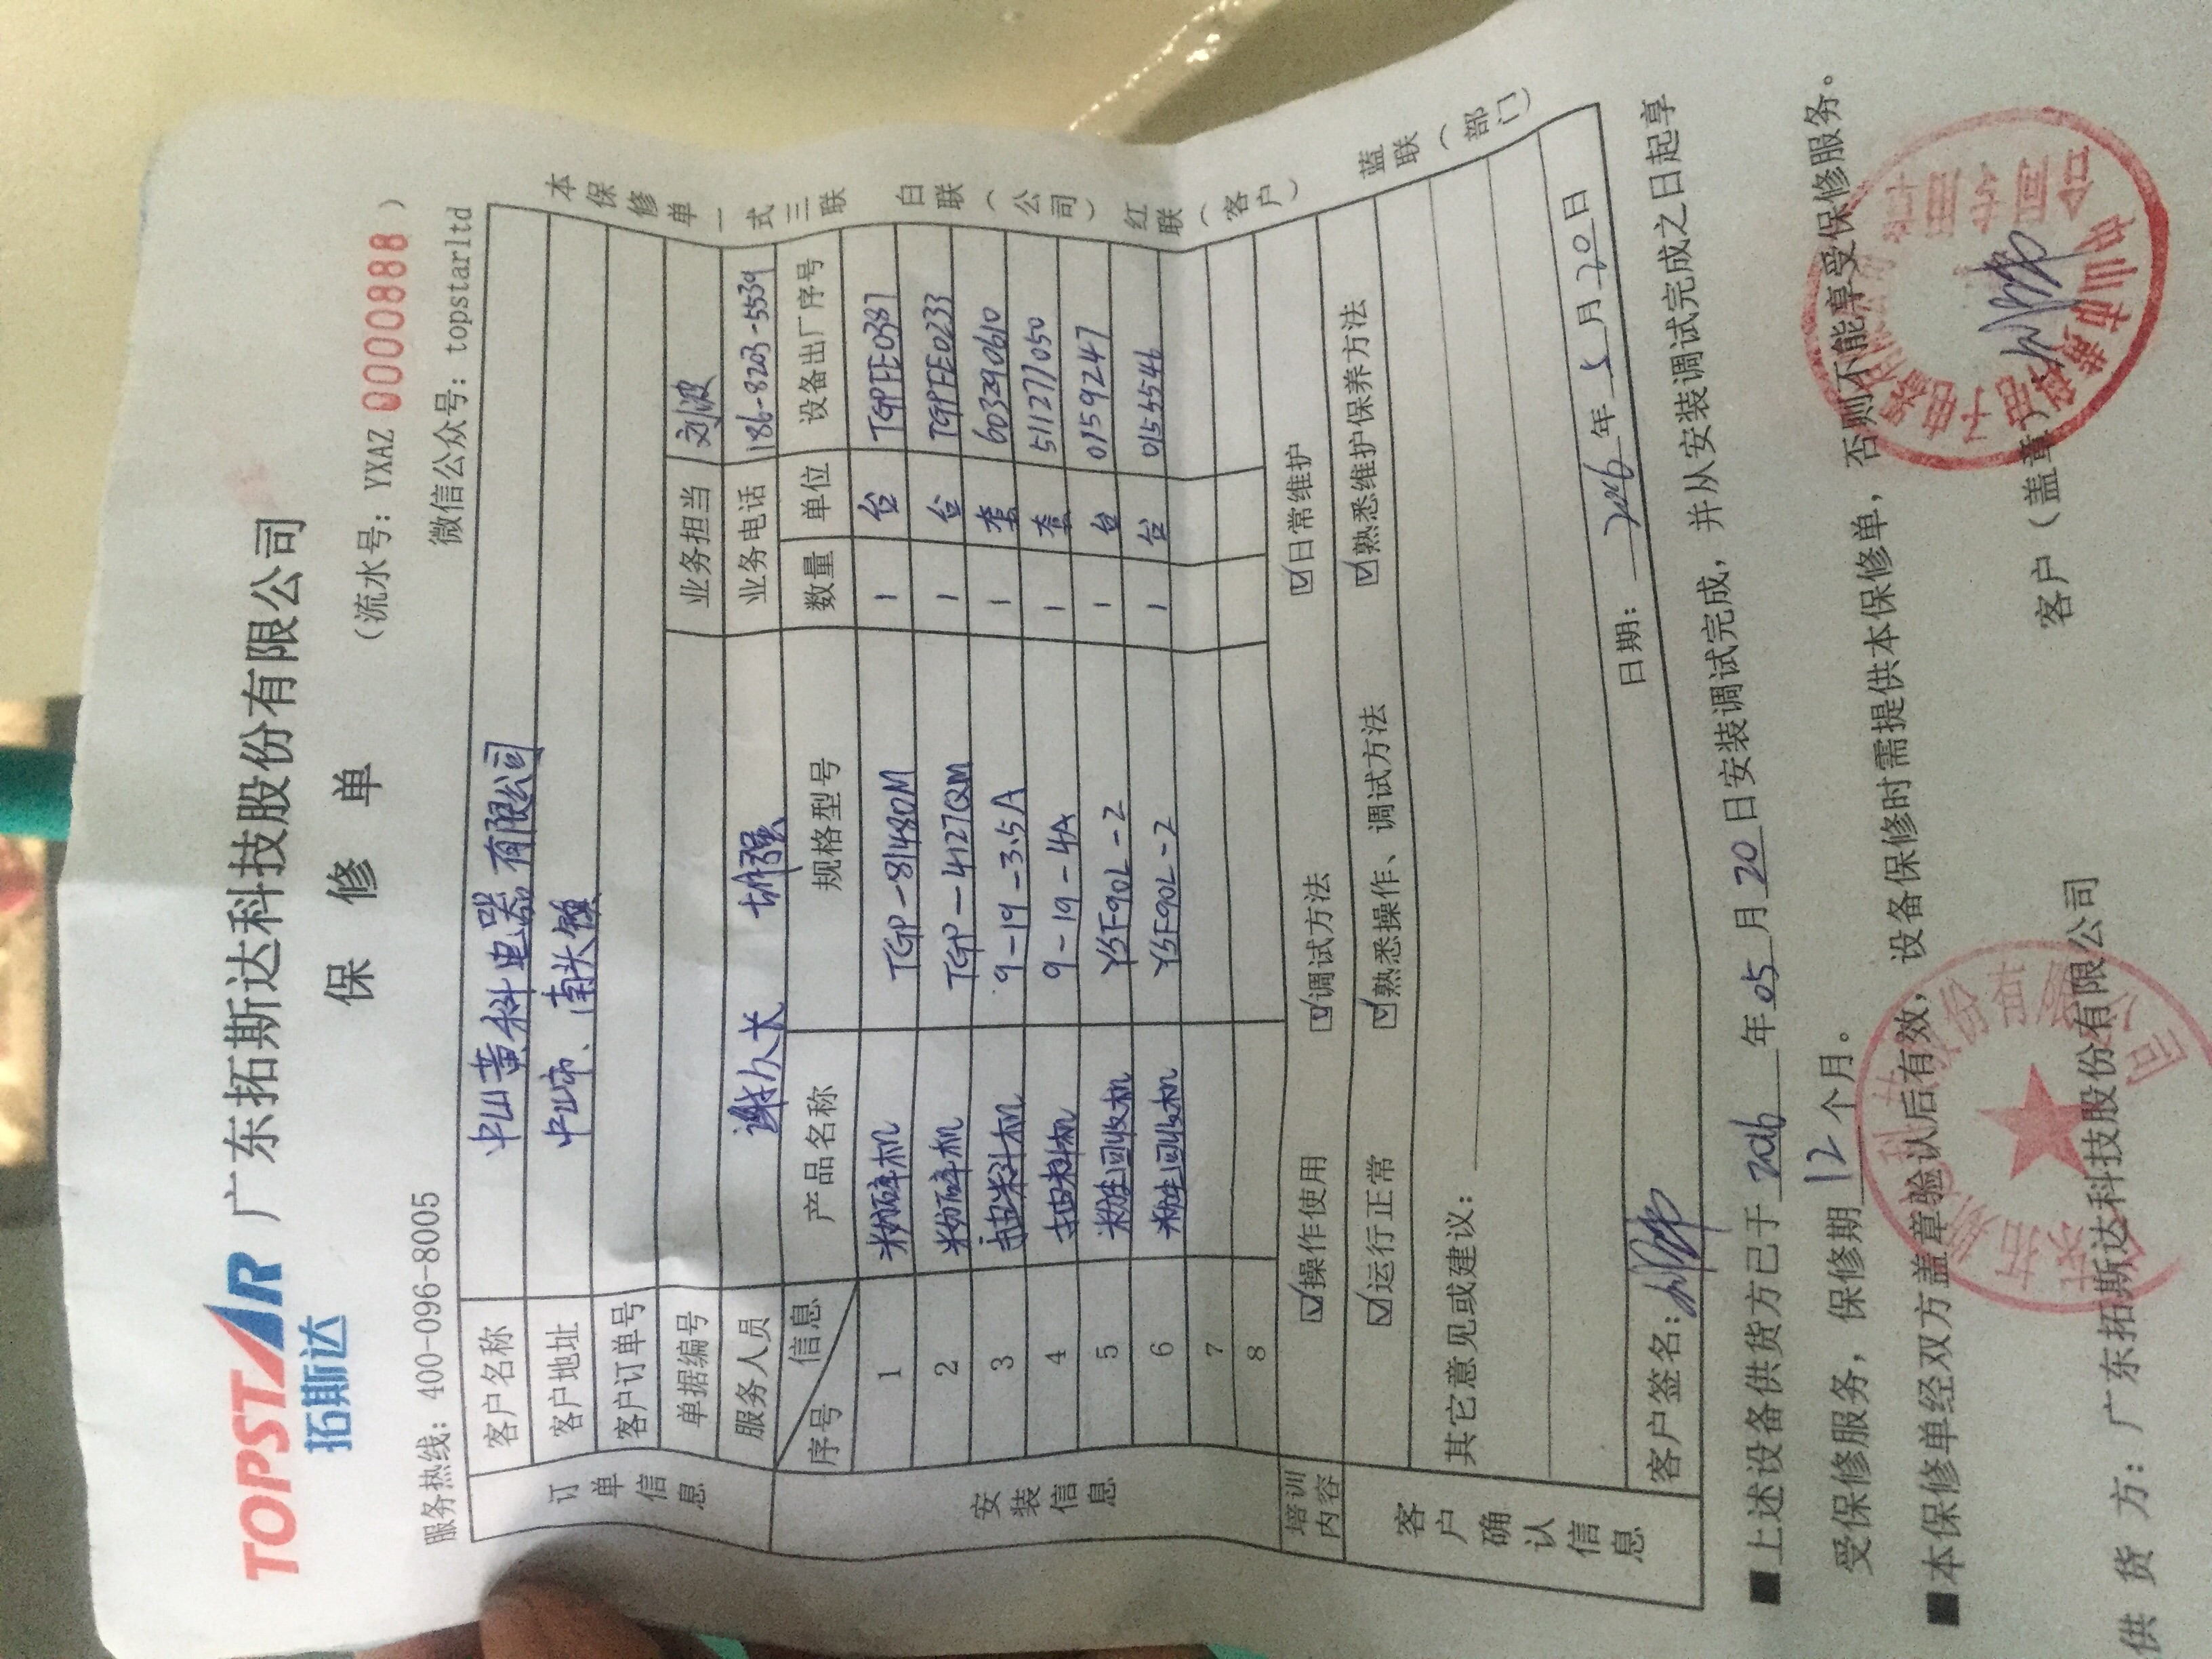 TOPSTAR 广东拓斯达科技股份有限公司
拓斯达
保 修 单
(流水号: YXAZ 0000888)
服务热线: 400-096-8005
微信公众号: topstarltd
订单信息
客户名称 中山黄科电器有限公司
客户地址 中山市、南头镇
客户订单号
单据编号 业务担当 刘波
服务人员 业务电话 186-8203-5539
安装信息
序号 信息 产品名称 规格型号 数量 单位 设备出厂序号
1 粉碎机 TGP-81480M 1 台 TGPFE0387
2 粉碎机 TGP-4127QM 1 台 TGPFE0233
3 抽料机 9-19-3.5A 1 套 603290610
4 抽料机 9-19-4A 1 套 511277050
5 粉尘回收机 YSF90L-2 1 台 0159247
6 粉尘回收机 YSF90L-2 1 台 0155546
7
8
培训内容 ☑操作使用 ☑调试方法 ☑日常维护
客户确认信息
☑运行正常 ☑熟悉操作、调试方法 ☑熟悉维护保养方法
其它意见或建议:
客户签名: 日期: 2016年5月20日
本保修单一式三联 白联(公司) 红联(客户) 蓝联(部门)
■上述设备供货方已于2016年05月20日安装调试完成, 并从安装调试完成之日起享
受保修服务, 保修期12个月。
■本保修单经双方盖章验认后有效, 设备保修时需提供本保修单, 否则不能享受保修服务。
供 货 方: 广东拓斯达科技股份有限公司 客户(盖章)